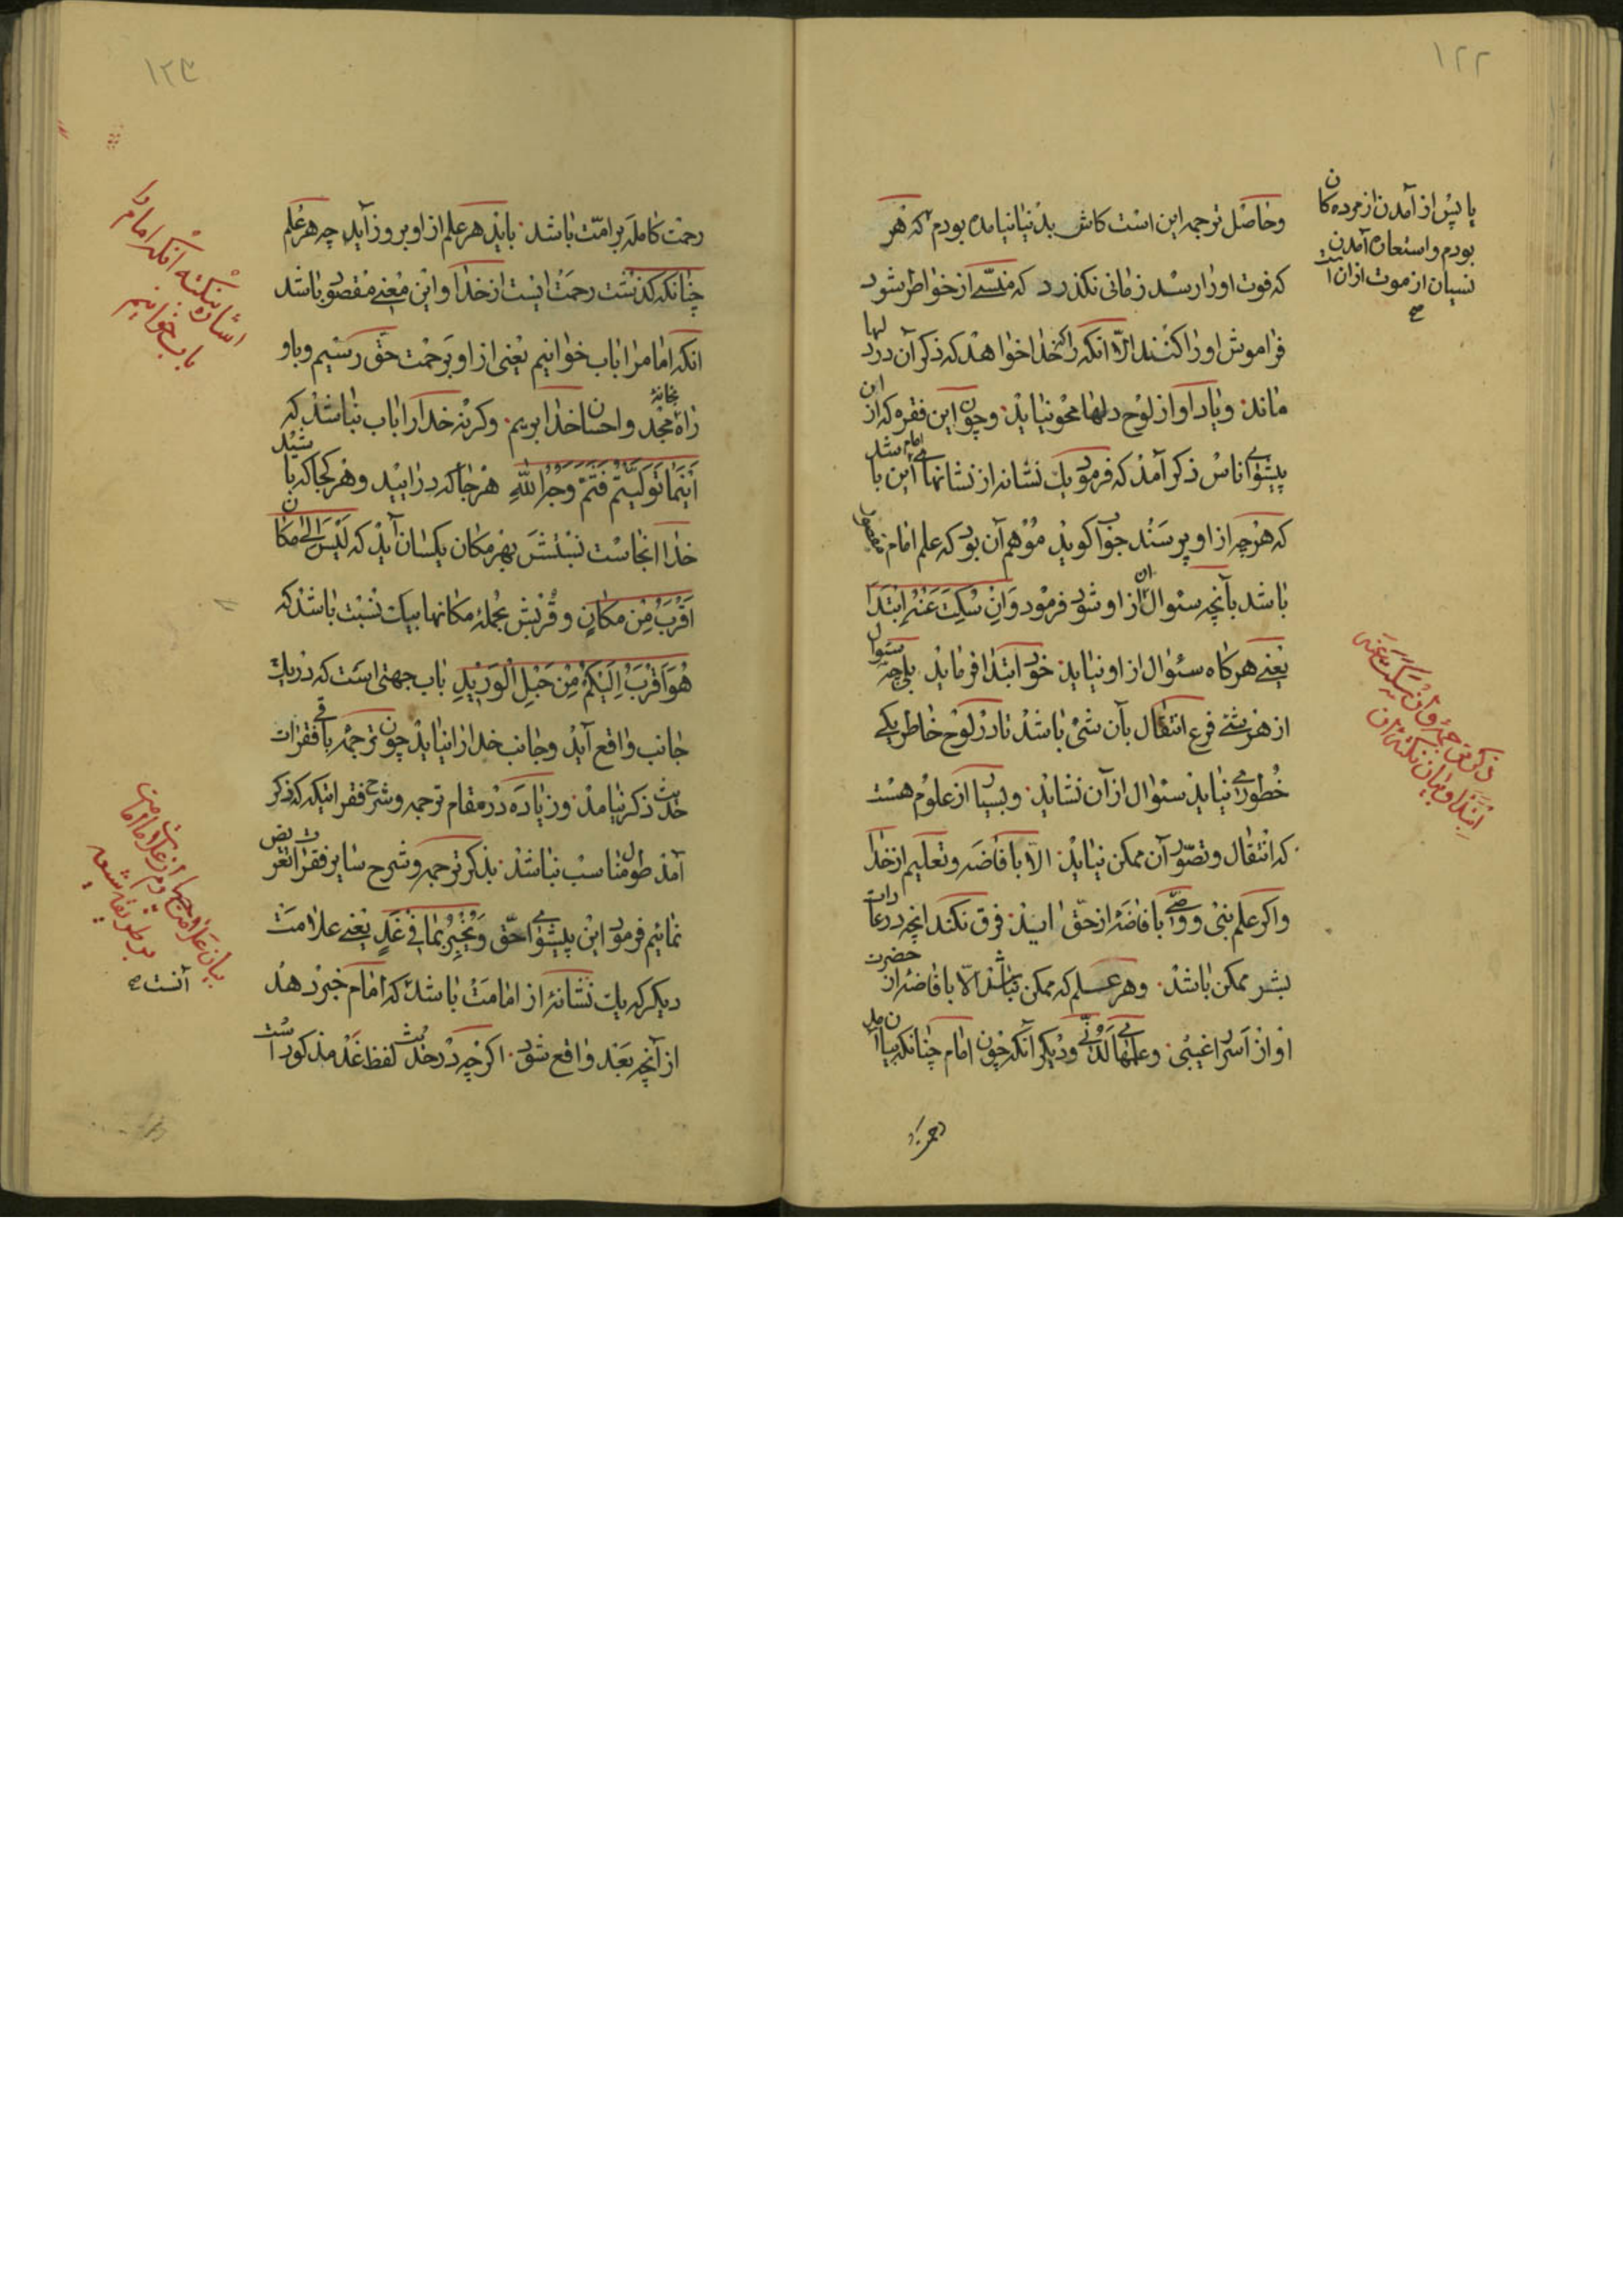 ۱۲۲
وحاصل ترجمه این است کاش بدنیا نیامده بودم که هر
که فوت او را رسد زمانی نگذرد که منسی از خواطر شود
فراموش او را کنند الّا آنکه را که خدا خواهد که ذکر آن در دلها
ماند و یاد او از لوح دلها محو نیاید و چون این فقره که از این
پیشوای اناس ذکر آمد که فرمود یک نشانه از نشانهای امام این باشد
که هرچه از او پرسند جواب کوید موهم آن بود که علم امام مقصور
باشد بآنچه سئوال از ان از او شود فرمود وَاِنْ سُکِتَ عَنْهُ اِبْتَدَأَ
یعنی هرکاه سئوال از او نیاید خود ابتدا فرماید بلی چه سئوال
از هر شئ فرع انتقال بآن شئ باشد تا در لوح خاطر یکی
خطور نیاید سئوال از آن نشاید و بسیار از علوم هست
که انتقال و تصوّر آن ممکن نیاید الّا بافاضه و تعلیم از خدا
واکر علم نبی و وصی بافاضهٔ از حقّ اید فرق نکند انچه در عادات
بشر ممکن باشد و هر علم که ممکن نباشد الّا بافاضهٔ از حضرت
او از اسرار غیبی و علمهای لدنّی و دیکر آنکه چون امام چنانکه بیان آمد
یا پس از آمدن از مرده کان
بودم و استعاره آمدن
نسیان از موت از ان است
ذکر ترجمهٔ وَاِنْ سُکِتَ عَنْهُ
اِبْتَدَأَ و بیان نکتهٔ آن
۱۲۳
رحمت کامله بر امّت باشد باید هر علم از او بروز آید چه هر علم
چنانکه کذشت رحمت ایست از خدا و این معنی مقصود باشد
انکه امام را باب خوانیم یعنی از او برحمت حق رسیم و باو
راه بخانهٔ مجد و احسان خدا بریم وکرنه خدا را باب نباشد که
اَیْنَمَا تُوَلَّیْتُمْ فَثَمَّ وَجْهُ اللّٰهِ هر جا که درائید و هر کجا که باشید
خدا انجاست نسبتش بهر مکان یکسان آید که لَیْسَ اِلیٰ مکان
اَقْرَبُ مِنْ مکانٍ و قربش بجملهٔ مکانها بیک نسبت باشد که
هُوَ اَقْرَبُ اِلَیْکُمْ مِنْ حَبْلِ الْوَرِیْدِ باب جهتی است که در یک
جانب واقع آید و جانب خدا را نیاید چون ترجمهٔ باقی فقرات
حدیث ذکر نیامد و زیاده در مقام ترجمه و شرح فقراتیکه ذکر
آمد طول مناسب نباشد بذکر ترجمه و شرح سایر فقرات تعرض
نمائیم فرمود این پیشوای حقّ وَیُخْبِرُ بِمَا فِی غَدٍ یعنی علامت
دیکر که یک نشانهٔ از امامت باشد که امام خبر دهد
از آنچه بعد واقع شود اکرچه در حدیث لفظ غَد مذکور است
اشاره بنکتهٔ انکه امام را
باب خوانیم
بیان علامت
بر طریقهٔ شیعه